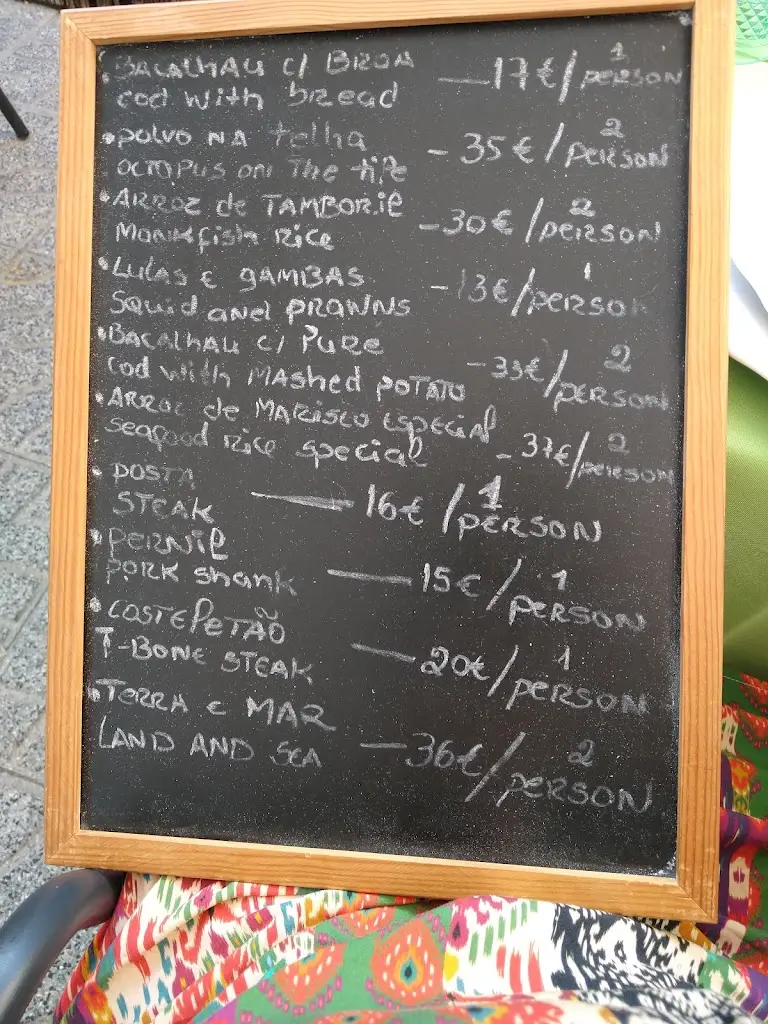 • BACALHAU C/ BROA
cod with bread — 17€/ 1 person
• POLVO NA telha
OCTOPUS on The tile - 35€/ 2 person
• ARROZ de TAMBORIL
MONKfish Rice - 30€/ 2 person
• LULAS E GAMBAS
Squid and PRAWNS - 13€/ 1 person
• BACALHAU C/ PURE
Cod with MAshed POTATO - 33€/ 2 person
• ARROZ de MARISCO ESPECIAL
seafood rice special - 37€/ 2 person
• POSTA
STEAK — 16€ / 1 PERSON
• PERNIL
PORK shank — 15€/ 1 PERSON
• COSTELETÃO
T-BONE STEAK — 20€/ 1 PERSON
• TERRA E MAR
LAND AND SEA — 36€/ 2 PERSON